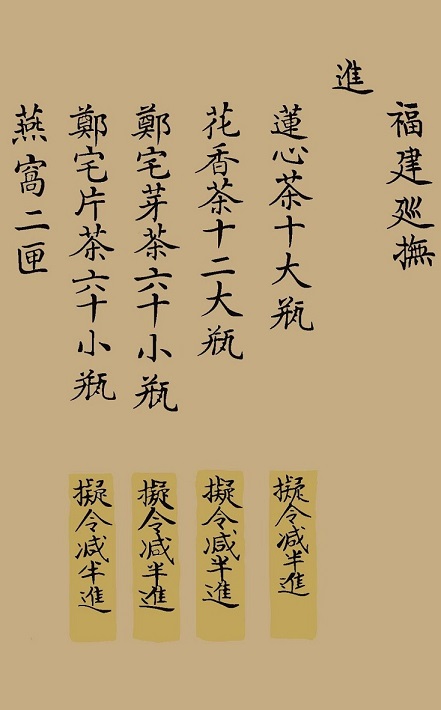 福建廵撫
進
蓮心茶十大瓶
擬令减半進
花香茶十二大瓶
擬令减半進
鄭宅芽茶六十小瓶
擬令减半進
鄭宅片茶六十小瓶
擬令减半進
燕窩二匣